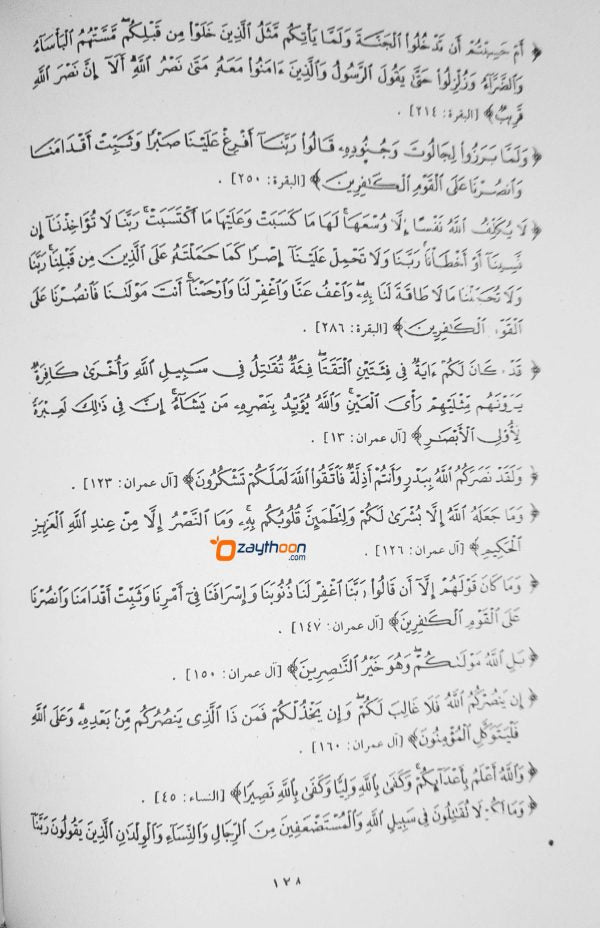 ﴿ أَمْ حَسِبْتُمْ أَن تَدْخُلُوا۟ ٱلْجَنَّةَ وَلَمَّا يَأْتِكُم مَّثَلُ ٱلَّذِينَ خَلَوْا۟ مِن قَبْلِكُم ۖ مَّسَّتْهُمُ ٱلْبَأْسَآءُ
وَٱلضَّرَّآءُ وَزُلْزِلُوا۟ حَتَّىٰ يَقُولَ ٱلرَّسُولُ وَٱلَّذِينَ ءَامَنُوا۟ مَعَهُۥ مَتَىٰ نَصْرُ ٱللَّهِ ۗ أَلَآ إِنَّ نَصْرَ ٱللَّهِ
قَرِيبٌ ﴾ [البقرة: ٢١٤] .
﴿ وَلَمَّا بَرَزُوا۟ لِجَالُوتَ وَجُنُودِهِۦ قَالُوا۟ رَبَّنَآ أَفْرِغْ عَلَيْنَا صَبْرًا وَثَبِّتْ أَقْدَامَنَا
وَٱنصُرْنَا عَلَى ٱلْقَوْمِ ٱلْكَـٰفِرِينَ ﴾ [البقرة: ٢٥٠] .
﴿ لَا يُكَلِّفُ ٱللَّهُ نَفْسًا إِلَّا وُسْعَهَا ۚ لَهَا مَا كَسَبَتْ وَعَلَيْهَا مَا ٱكْتَسَبَتْ ۗ رَبَّنَا لَا تُؤَاخِذْنَآ إِن
نَّسِينَآ أَوْ أَخْطَأْنَا ۚ رَبَّنَا وَلَا تَحْمِلْ عَلَيْنَآ إِصْرًا كَمَا حَمَلْتَهُۥ عَلَى ٱلَّذِينَ مِن قَبْلِنَا ۚ رَبَّنَا
وَلَا تُحَمِّلْنَا مَا لَا طَاقَةَ لَنَا بِهِۦ ۖ وَٱعْفُ عَنَّا وَٱغْفِرْ لَنَا وَٱرْحَمْنَآ ۚ أَنتَ مَوْلَىٰنَا فَٱنصُرْنَا عَلَى
ٱلْقَوْمِ ٱلْكَـٰفِرِينَ ﴾ [البقرة: ٢٨٦] .
﴿ قَدْ كَانَ لَكُمْ ءَايَةٌ فِى فِئَتَيْنِ ٱلْتَقَتَا ۖ فِئَةٌ تُقَـٰتِلُ فِى سَبِيلِ ٱللَّهِ وَأُخْرَىٰ كَافِرَةٌ
يَرَوْنَهُم مِّثْلَيْهِمْ رَأْىَ ٱلْعَيْنِ ۚ وَٱللَّهُ يُؤَيِّدُ بِنَصْرِهِۦ مَن يَشَآءُ ۗ إِنَّ فِى ذَٰلِكَ لَعِبْرَةً
لِّأُو۟لِى ٱلْأَبْصَـٰرِ ﴾ [آل عمران: ١٣] .
﴿ وَلَقَدْ نَصَرَكُمُ ٱللَّهُ بِبَدْرٍ وَأَنتُمْ أَذِلَّةٌ ۖ فَٱتَّقُوا۟ ٱللَّهَ لَعَلَّكُمْ تَشْكُرُونَ ﴾ [آل عمران: ١٢٣] .
﴿ وَمَا جَعَلَهُ ٱللَّهُ إِلَّا بُشْرَىٰ لَكُمْ وَلِتَطْمَئِنَّ قُلُوبُكُم بِهِۦ ۗ وَمَا ٱلنَّصْرُ إِلَّا مِنْ عِندِ ٱللَّهِ ٱلْعَزِيزِ
ٱلْحَكِيمِ ﴾ [آل عمران: ١٢٦] .
zaythoon.com
﴿ وَمَا كَانَ قَوْلَهُمْ إِلَّآ أَن قَالُوا۟ رَبَّنَا ٱغْفِرْ لَنَا ذُنُوبَنَا وَإِسْرَافَنَا فِىٓ أَمْرِنَا وَثَبِّتْ أَقْدَامَنَا وَٱنصُرْنَا
عَلَى ٱلْقَوْمِ ٱلْكَـٰفِرِينَ ﴾ [آل عمران: ١٤٧] .
﴿ بَلِ ٱللَّهُ مَوْلَىٰكُمْ ۖ وَهُوَ خَيْرُ ٱلنَّـٰصِرِينَ ﴾ [آل عمران: ١٥٠] .
﴿ إِن يَنصُرْكُمُ ٱللَّهُ فَلَا غَالِبَ لَكُمْ ۖ وَإِن يَخْذُلْكُمْ فَمَن ذَا ٱلَّذِى يَنصُرُكُم مِّنۢ بَعْدِهِۦ ۗ وَعَلَى ٱللَّهِ
فَلْيَتَوَكَّلِ ٱلْمُؤْمِنُونَ ﴾ [آل عمران: ١٦٠] .
﴿ وَٱللَّهُ أَعْلَمُ بِأَعْدَآئِكُمْ ۚ وَكَفَىٰ بِٱللَّهِ وَلِيًّا وَكَفَىٰ بِٱللَّهِ نَصِيرًا ﴾ [النساء: ٤٥] .
﴿ وَمَا لَكُمْ لَا تُقَـٰتِلُونَ فِى سَبِيلِ ٱللَّهِ وَٱلْمُسْتَضْعَفِينَ مِنَ ٱلرِّجَالِ وَٱلنِّسَآءِ وَٱلْوِلْدَٰنِ ٱلَّذِينَ يَقُولُونَ رَبَّنَآ
١٢٨